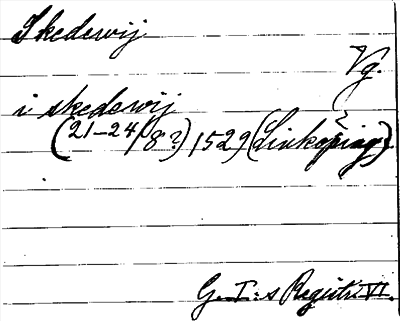 Skedewij
Vg.
i skedewij
(21-24/8?) 1529 (Linköping?)
G. I:s Registr. VI.